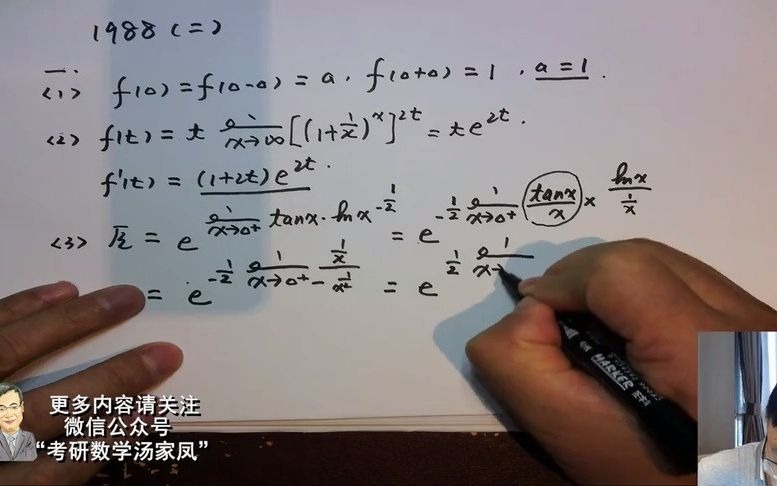 1988 (二)
一.
<1> f(0) = f(0-0) = a . f(0+0) = 1 . a = 1 .
<2> f(t) = t lim x→∞ [(1+1/x)^x]^2t = te^2t .
f'(t) = (1+2t)e^2t .
<3> 原 = e^(lim x→0+ tanx · ln x^(-1/2)) = e^(-1/2 lim x→0+ (tanx/x) × (lnx/(1/x)))
= e^(-1/2 lim x→0+ (1/x)/(-1/x²)) = e^(1/2 lim x→
MARKER
更多内容请关注
微信公众号
“考研数学汤家凤”